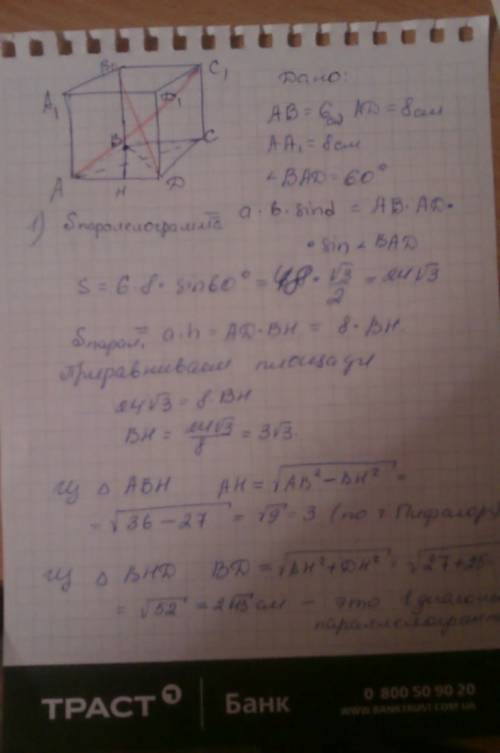 B₁ C₁
A₁ D₁
B C
A H D
Дано:
AB = 6см AD = 8см
AA₁ = 8см
∠BAD = 60°
1) Sпараллелограмма = a·b·sinα = AB·AD·
·sin ∠BAD
S = 6·8·sin60° = 48·√3/2 = 24√3
Sпарал. = a·h = AD·BH = 8·BH
Приравниваем площади
24√3 = 8·BH
BH = 24√3/8 = 3√3.
Из Δ ABH AH = √AB² − BH² =
= √36 − 27 = √9 = 3 (по т. Пифагора)
Из Δ BHD BD = √BH² + DH² = √27+25
= √52 = 2√13 см – это 1 диагональ
параллелограмма
ТРАСТ Банк
0 800 50 90 20
WWW.BANKTRUST.COM.UA